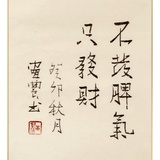 不發脾氣
只發財
癸卯秋月